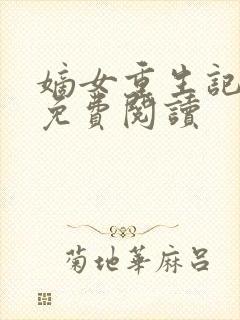 嫡女重生記
免費閱讀
菊地華麻呂